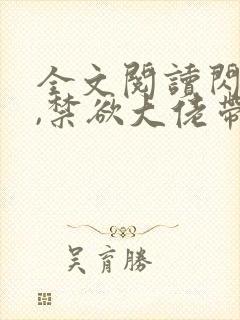 全文閱讀閃
,禁欲大佬帶
吳育勝